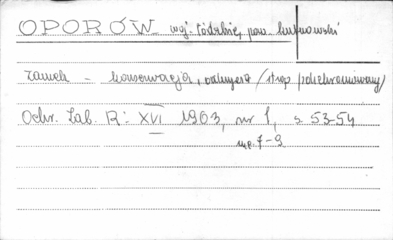 OPORÓW woj. łódzkie, pow. kutnowski
zamek - konserwacja, odkrycia (strop polichromowany)
Ochr. Zab. R: XVI 1963, nr 1, s. 53-54
il. 7-9